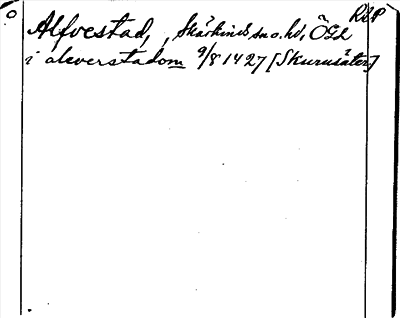 RAP
Alfvestad, Skärkinds sn o. hd, Ögl
i aleverstadom 9/8 1427 [Skurusäter]